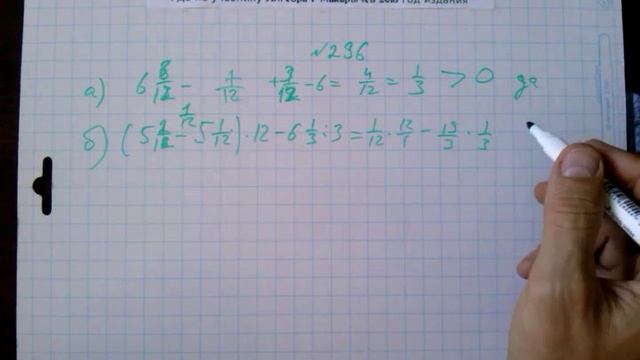 ГДЗ по учебнику Алгебра 7 Макарычев 2013 год издания
№236
а) 6 8/12 - 7/12 + 3/12 - 6 = 4/12 = 1/3 > 0 да
б) (5 2/12 - 5 1/12) · 12 - 6 1/3 : 3 = 1/12 · 12/1 - 19/3 · 1/3